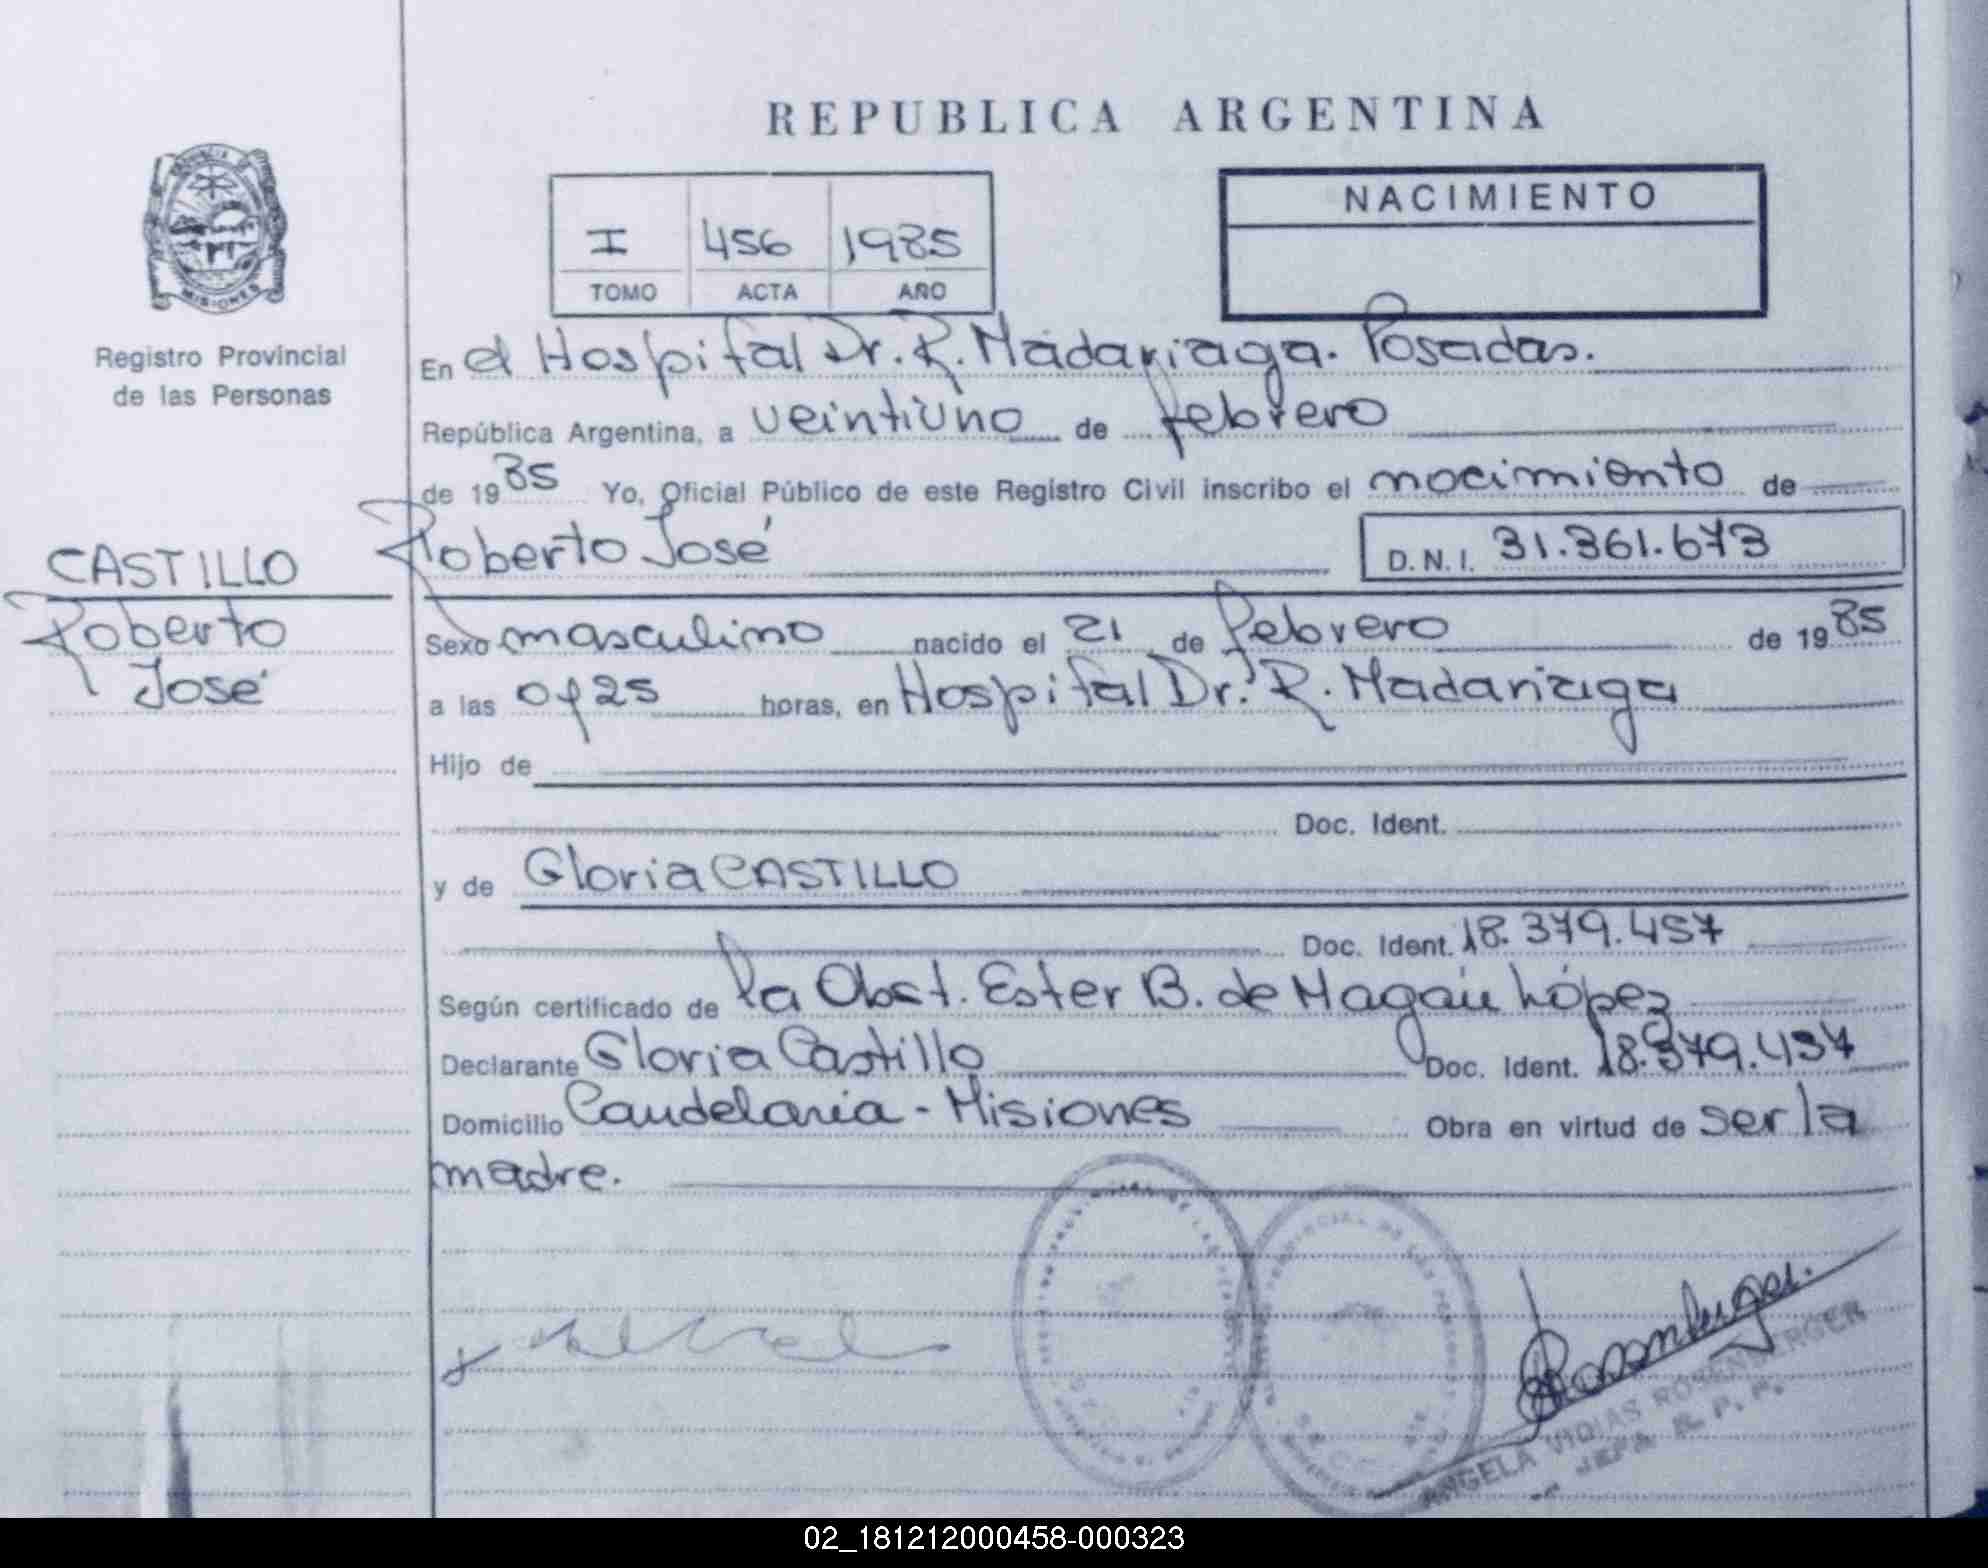 REPUBLICA ARGENTINA
PROVINCIA DE
MISIONES
Registro Provincial
de las Personas
I 456 1985
TOMO ACTA AÑO
NACIMIENTO
En el Hospital Dr. R. Madariaga. Posadas.
República Argentina, a veintiuno de febrero
de 1985 Yo, Oficial Público de este Registro Civil inscribo el nacimiento de
Roberto José D.N.I. 31.361.673
CASTILLO
Roberto
José
Sexo masculino nacido el 21 de febrero de 1985
a las 0y25 horas, en Hospital Dr. R. Madariaga
Hijo de
Doc. Ident.
y de Gloria CASTILLO
Doc. Ident. 18.379.457
Según certificado de la Obst. Ester B. de Magaú López
Declarante Gloria Castillo Doc. Ident. 18.379.457
Domicilio Candelaria - Misiones Obra en virtud de ser la
madre.
ANGELA VIDIAS ROSENBERGER
JEFA R. P. P.
02_181212000458-000323